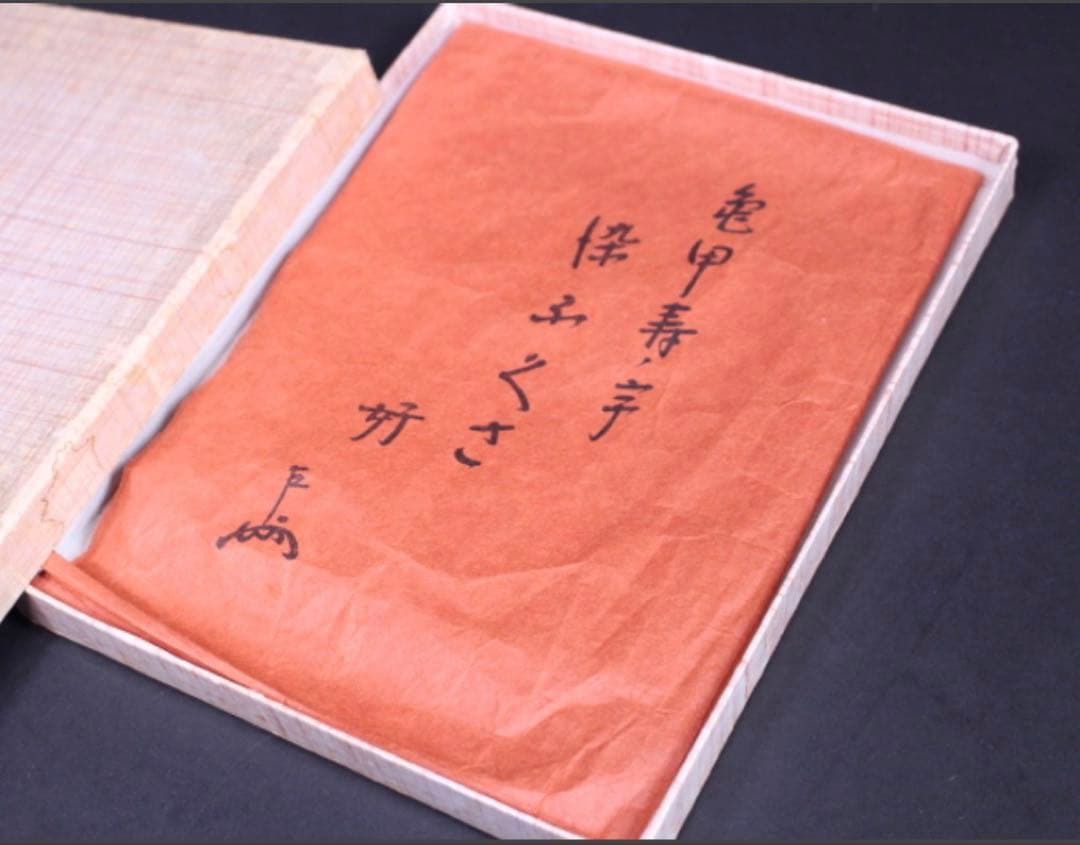 亀甲寿ノ字
染ふぐさ
好